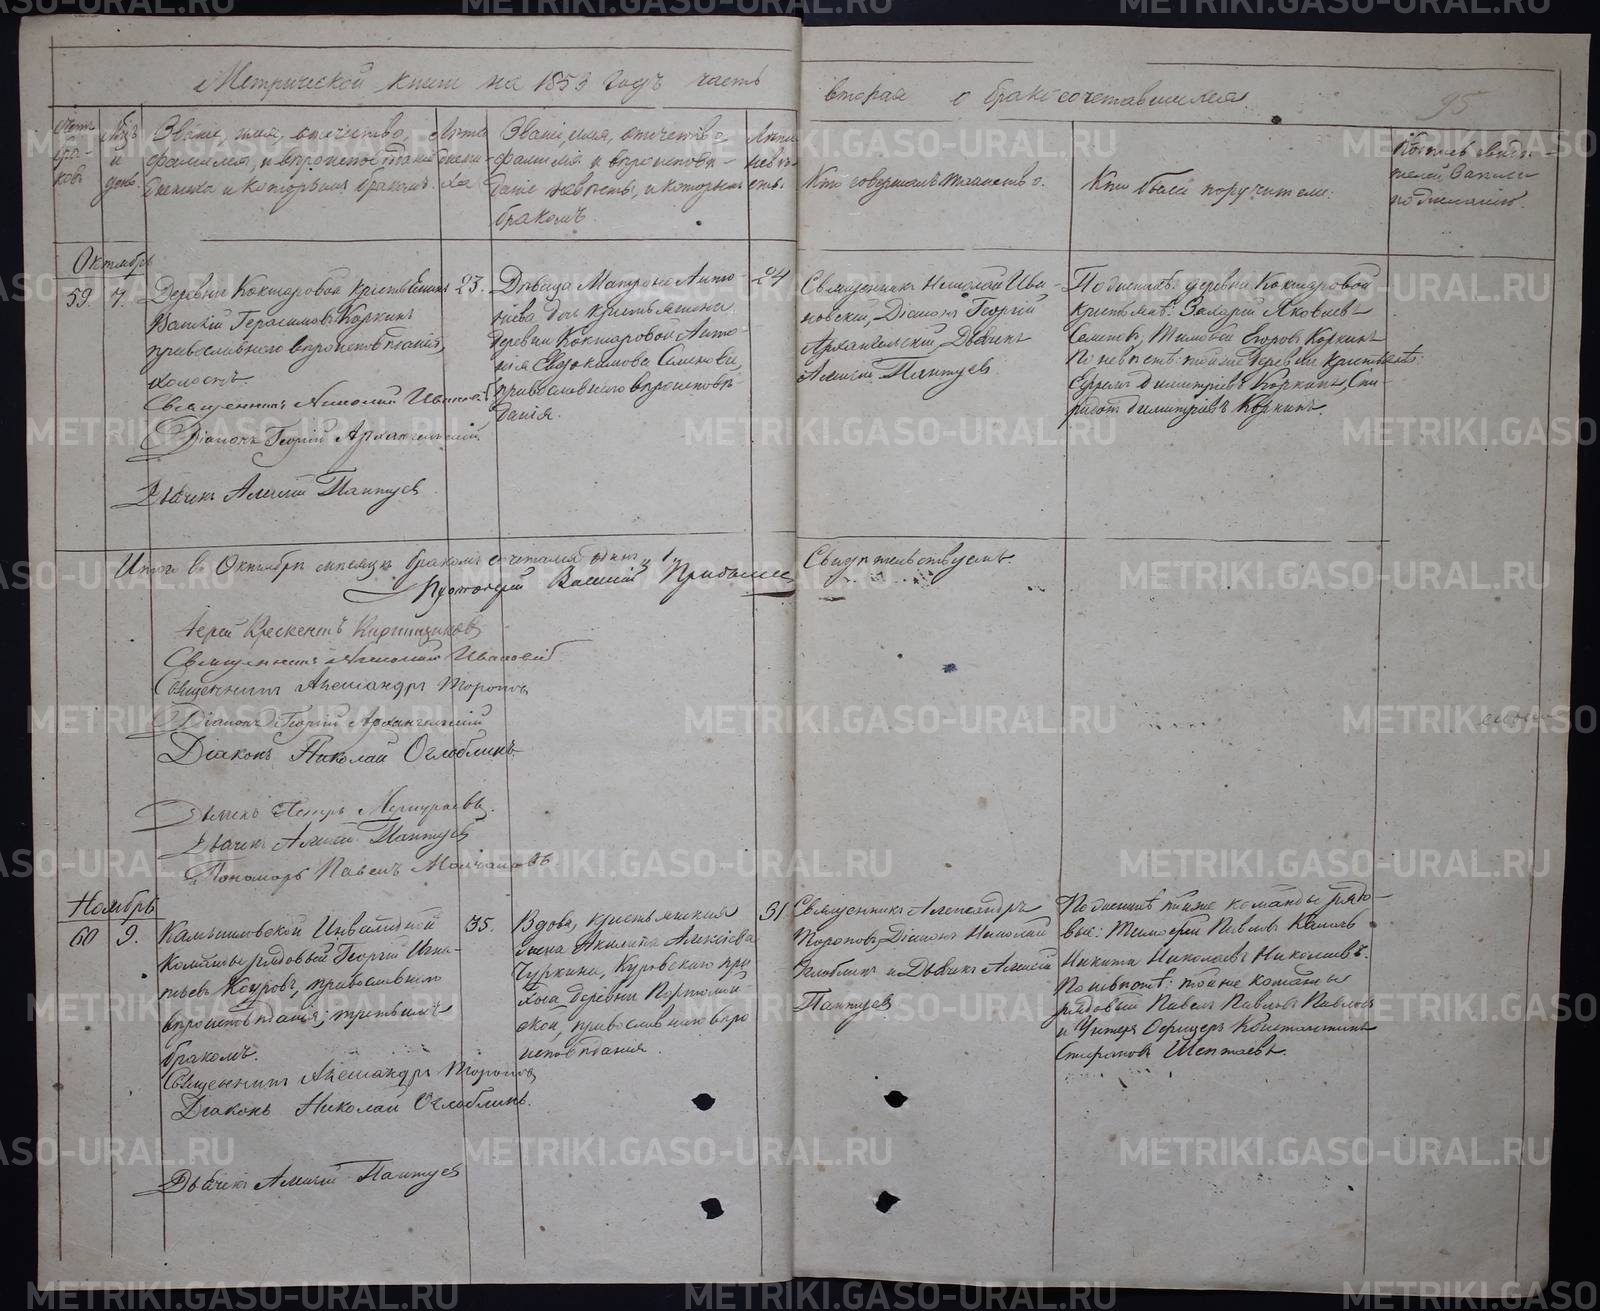 Метрической книги на 1853 годъ часть
вторая о бракосочетавшихся
95
Счетъ бра-ковъ
Мѣц. и день.
Званіе, имя, отчество,
фамилія, и вѣроисповѣданіе
жениха и которымъ бракомъ.
Лѣта жени-ха
Званіе, имя, отчество,
фамилія и вѣроисповѣ-
даніе невѣсты, и которымъ
бракомъ.
Лѣта невѣ-сты.
Кто совершалъ таинство.
Кто были поручители.
Подпись свидѣ-
телей записи
по желанію.
Октябрь
59
7.
Деревни Кокшаровой крестьянинъ
Василій Герасимовъ Коркинъ
православнаго вѣроисповѣданія,
холостъ.
Священникъ Николай Ивановскій
Діаконъ Георгій Архангельскій
Дьячекъ Алексій Пантуев
23.
Дѣвица Матрона Анто-
ніева дочь крестьянина
деревни Кокшаровой Анто-
нія Евдокимова Семенова,
православнаго вѣроисповѣ-
данія.
24
Священникъ Николай Ива-
новскій, Діаконъ Георгій
Архангельскій, Дьячекъ
Алексій Пантуев.
По женихѣ: деревни Кокшаровой
крестьянѣ: Захарій Яковлевъ
Семеновъ, Тимофей Егоровъ Коркинъ
По невѣстѣ: тойже деревни крестьянѣ:
Ефремъ Димитріевъ Коркинъ, Спи-
ридонъ Димитріевъ Коркинъ.
Итого въ Октябрѣ мѣсяцѣ бракомъ сочетался одинъ 1
Свидѣтельствуемъ.
Протоіерей Василій
Іерей Крескентъ Кирпищиковъ
Священникъ Николай Ивановскій
Священникъ Александръ Тороповъ
Діаконъ Георгій Архангельскій
Діаконъ Николай Оглоблинъ
Дьячекъ Петръ Меркурьевъ.
Дьячекъ Алексій Пантуев
Пономарь Павелъ Молчановъ
Ноябрь
60
9.
Камышловской Инвалидной
Команды рядовый Георгій Игна-
тьевъ Коуровъ, православнаго
вѣроисповѣданія; третьимъ
бракомъ.
Священникъ Александръ Тороповъ
Діаконъ Николай Оглоблинъ.
Дьячекъ Алексій Пантуев
35.
Вдова, крестьянская
жена Акилина Алексіева
Чуркина, Куровскаго при-
хода деревни
православнаго вѣро
исповѣданія.
31
Священникъ Александръ
Тороповъ, Діаконъ Николай
Оглоблинъ и Дьячекъ Алексій
Пантуев
По женихѣ: тойже команды рядо-
вые: Тимофей Павловъ
Никита Николаевъ Николаевъ.
По невѣстѣ: тойже команды
рядовый Павелъ Павловъ Павловъ
и Унтеръ Офицеръ Константинъ
Стефановъ Шептаевъ.